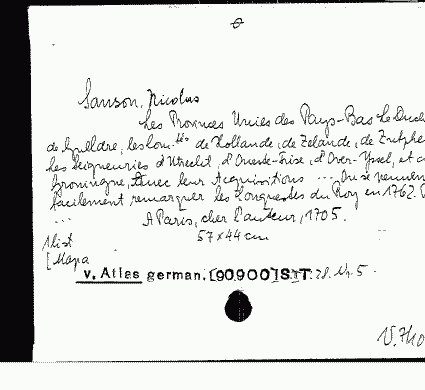 Sanson, Nicolas
Les Provinces Unies des Pays-Bas Le Duch
de Gueldre, les Com.tés de Hollande, de Zelande, de Zutphe
Les Seigneuries d'Utrecht, d'Oueste-Frise, d'Over-Yssel, et
Groningue, avec leur Acquisitions ... Ou se
facilement remarquer les Conquestes du Roy en 1762.
...
A Paris, chez l'auteur, 1705.
57 x 44 cm
1 list
[Mapa
v. Atlas german. [90.900] S.T. 28. Nr. 5.